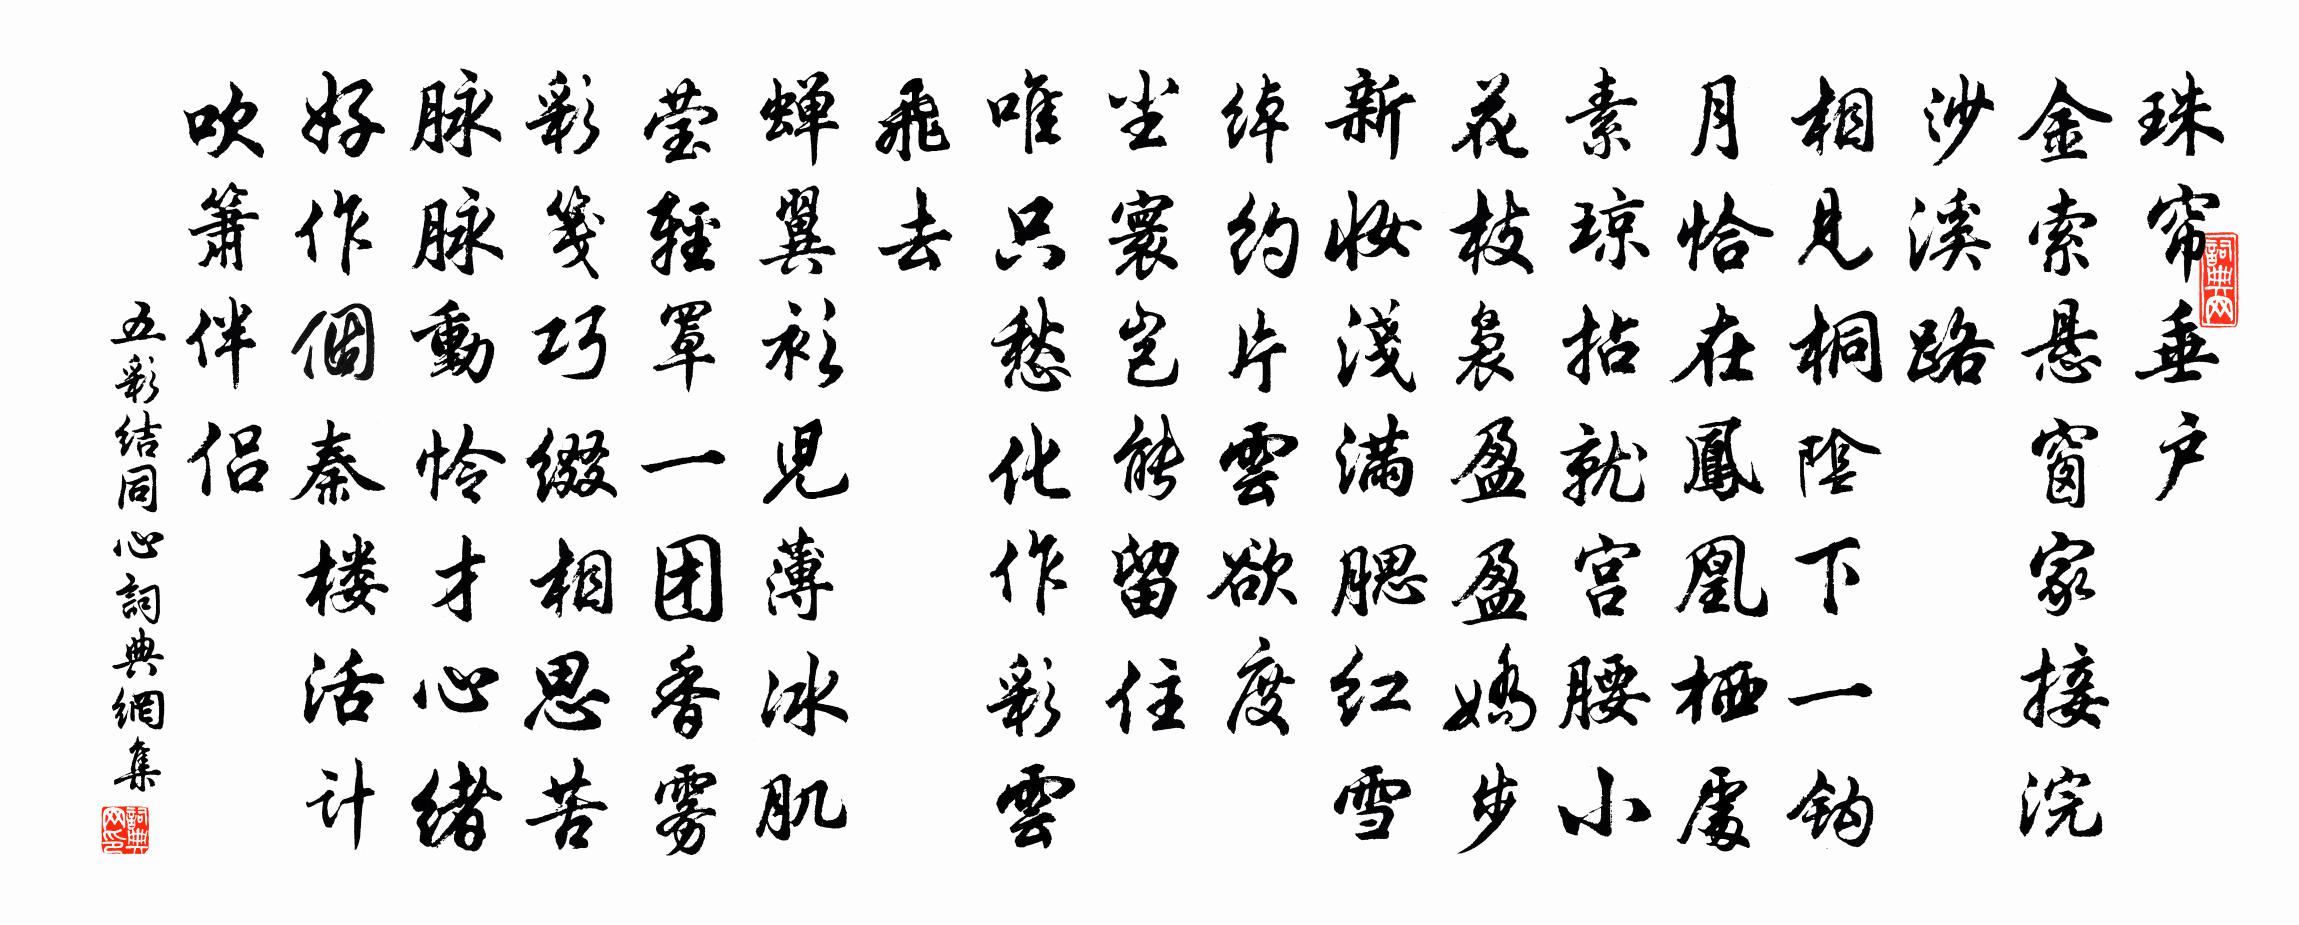 珠帘垂户
金索悬窗家接浣
沙溪路
相見桐陰下一钩
月恰在鳳凰栖處
素琼拈就宫腰小
花枝袅盈盈嬌步
新妆淺滿腮红雪
绰约片雲欲度
尘寰岂能留住
唯只愁化作彩雲
飛去
蝉翼衫兒薄冰肌
莹輕罩一团香雾
彩笺巧缀相思苦
脉脉動怜才心緒
好作個秦楼活计
吹箫伴侣
五彩结同心詞典網集
詞典网
詞典网印